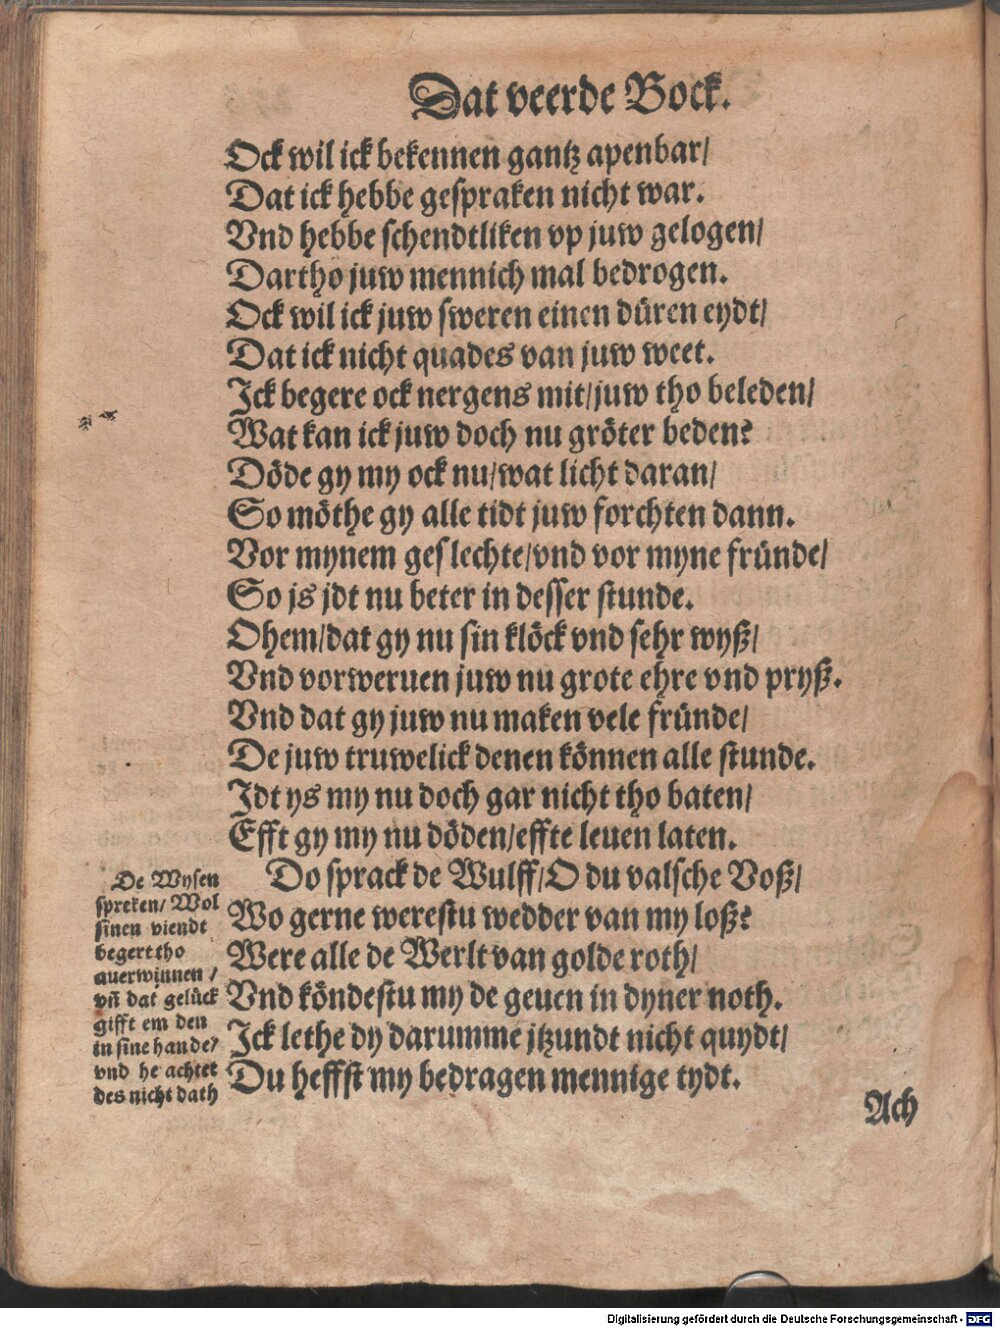 Dat veerde Bock.
Ock wil ick bekennen gantz apenbar/
Dat ick hebbe gespraken nicht war.
Vnd hebbe schendtliken vp juw gelogen/
Dartho juw mennich mal bedrogen.
Ock wil ick juw sweren einen düren eydt/
Dat ick nicht quades van juw weet.
Ick begere ock nergens mit/juw tho beleden/
Wat kan ick juw doch nu gröter beden?
Döde gy my ock nu/wat licht daran/
So möthe gy alle tidt juw forchten dann.
Vor mynem geslechte/vnd vor myne fründe/
So js jdt nu beter in desser stunde.
Ohem/dat gy nu sin klöck vnd sehr wyß/
Vnd vorweruen juw nu grote ehre vnd pryß.
Vnd dat gy juw nu maken vele fründe/
De juw truwelick denen können alle stunde.
Idt ys my nu doch gar nicht tho baten/
Efft gy my nu döden/effte leuen laten.
Do sprack de Wulff/O du valsche Voß/
Wo gerne werestu wedder van my loß?
Were alle de Werlt van golde roth/
Vnd köndestu my de geuen in dyner noth.
Ick lethe dy darumme jtzundt nicht quydt/
Du heffst my bedragen mennige tydt.
De Wysen
spreken/ Wol
sinen viendt
begert tho
auerwinnen /
vñ dat gelück
gifft em den
in sine hande/
vnd he achtet
des nicht dath
Ach
Digitalisierung gefördert durch die Deutsche Forschungsgemeinschaft - DFG